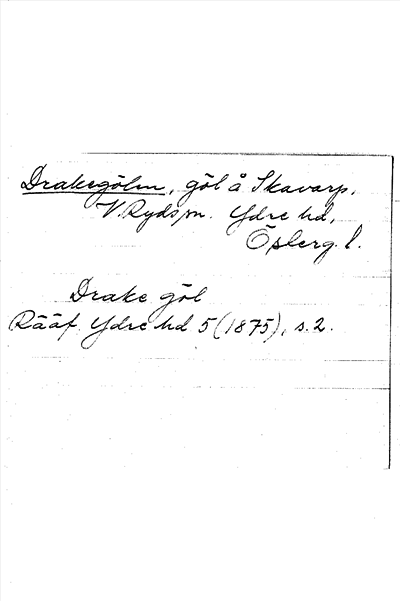 Drakegölen, göl å Skavarp,
V. Ryds sn. Ydre hd,
Österg. l.
Drake göl
Rääf. Ydre hd 5 (1875), s. 2.